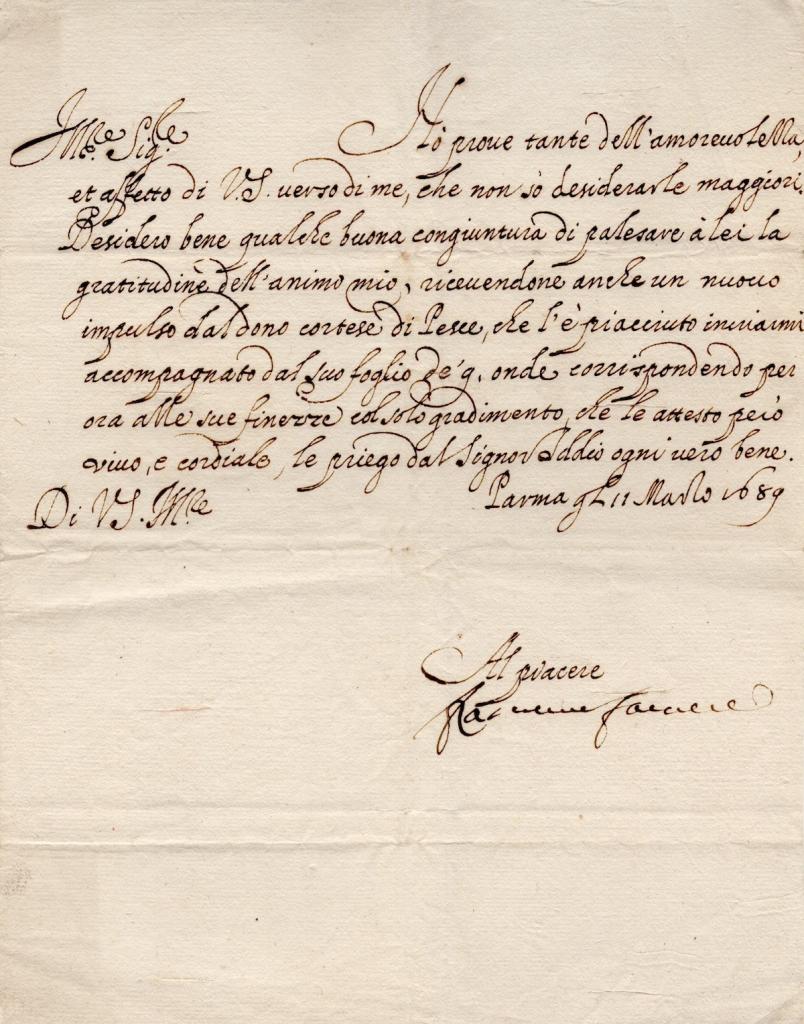 Ill.re Sig.re Hò prove tante dell'amorevolezza,
et affetto di V.S. verso di me, che non sò desiderarle maggiori.
Desidero bene qualche buona congiuntura di palesare à lei la
gratitudine dell'animo mio, ricevendone anche un nuovo
impulso dal dono cortese di Pesce, che l'è piacciuto inviarmi
accompagnato dal suo foglio de' 9. onde corrispondendo per
ora alle sue finezze col solo gradimento, che le attesto però
vivo, e cordiale, le priego dal Signor Iddio ogni vero bene.
Parma gl. 11 Marzo 1689
Di V.S. Ill.re
Al piacere
Farnese